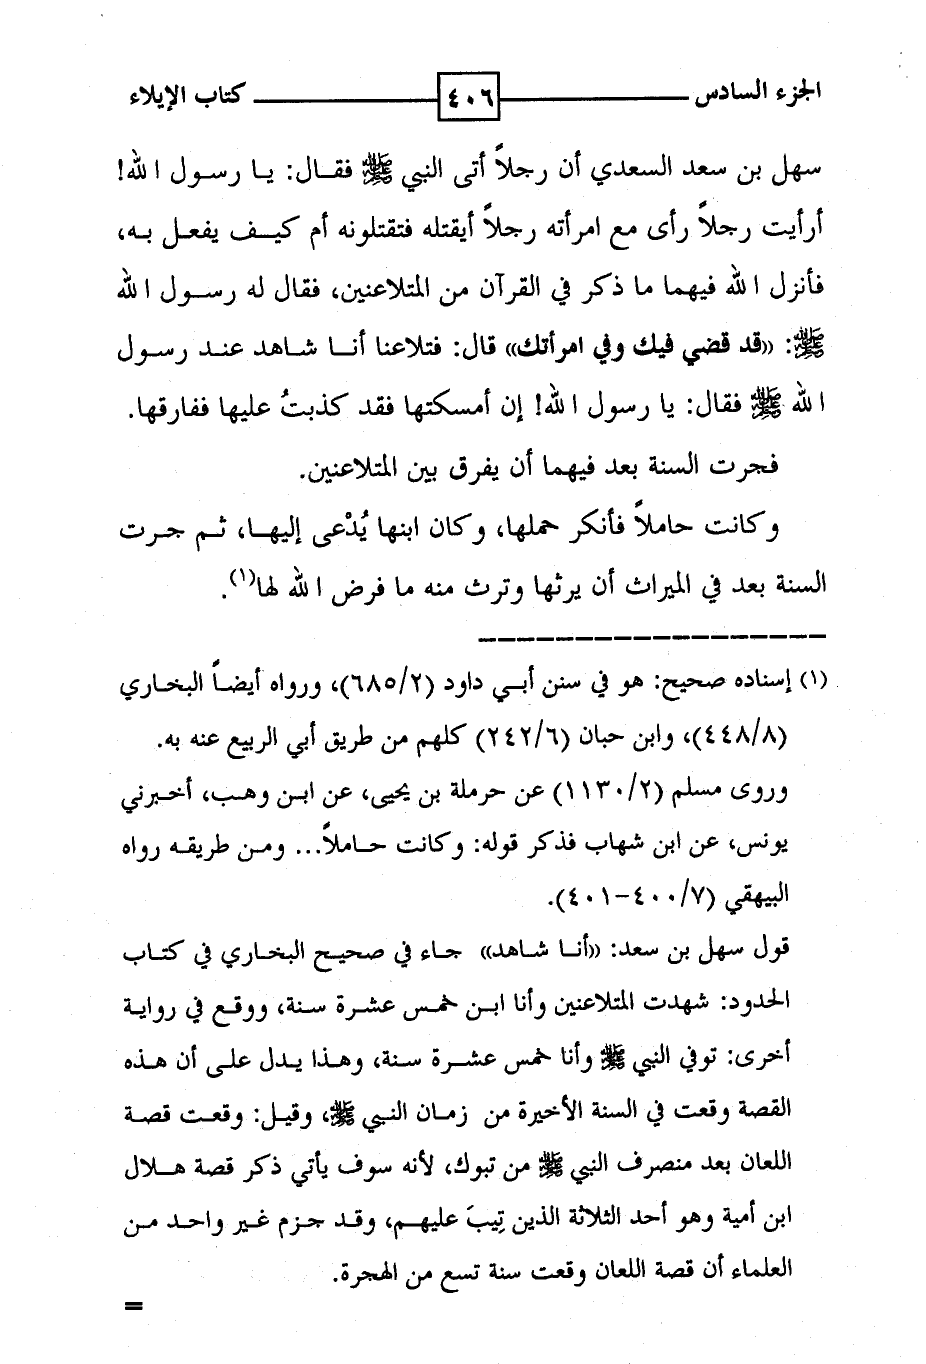 الجزء السادس ٤٠٦ كتاب الإيلاء
سهل بن سعد السعدي أن رجلاً أتى النبي ﷺ فقال: يا رسول الله!
أرأيت رجلاً رأى مع امرأته رجلاً أيقتله فتقتلونه أم كيف يفعل به،
فأنزل الله فيهما ما ذكر في القرآن من المتلاعنين، فقال له رسول الله
ﷺ: «قد قضي فيك وفي امرأتك» قال: فتلاعنا أنا شاهد عند رسول
الله ﷺ فقال: يا رسول الله! إن أمسكتها فقد كذبتُ عليها ففارقها.
فجرت السنة بعد فيهما أن يفرق بين المتلاعنين.
وكانت حاملاً فأنكر حملها، وكان ابنها يُدْعى إليها، ثم جرت
السنة بعد في الميراث أن يرثها وترث منه ما فرض الله لها(١).
(١) إسناده صحيح: هو في سنن أبي داود (٦٨٥/٢)، ورواه أيضاً البخاري
(٤٤٨/٨)، وابن حبان (٢٤٢/٦) كلهم من طريق أبي الربيع عنه به.
وروى مسلم (١١٣٠/٢) عن حرملة بن يحيى، عن ابن وهب، أخبرني
يونس، عن ابن شهاب فذكر قوله: وكانت حاملاً... ومن طريقه رواه
البيهقي (٤٠٠/٧-٤٠١).
قول سهل بن سعد: «أنا شاهد» جاء في صحيح البخاري في كتاب
الحدود: شهدت المتلاعنين وأنا ابن خمس عشرة سنة، ووقع في رواية
أخرى: توفي النبي ﷺ وأنا خمس عشرة سنة، وهذا يدل على أن هذه
القصة وقعت في السنة الأخيرة من زمان النبي ﷺ، وقيل: وقعت قصة
اللعان بعد منصرف النبي ﷺ من تبوك، لأنه سوف يأتي ذكر قصة هلال
ابن أمية وهو أحد الثلاثة الذين تِيبَ عليهم، وقد جزم غير واحد من
العلماء أن قصة اللعان وقعت سنة تسع من الهجرة.
=